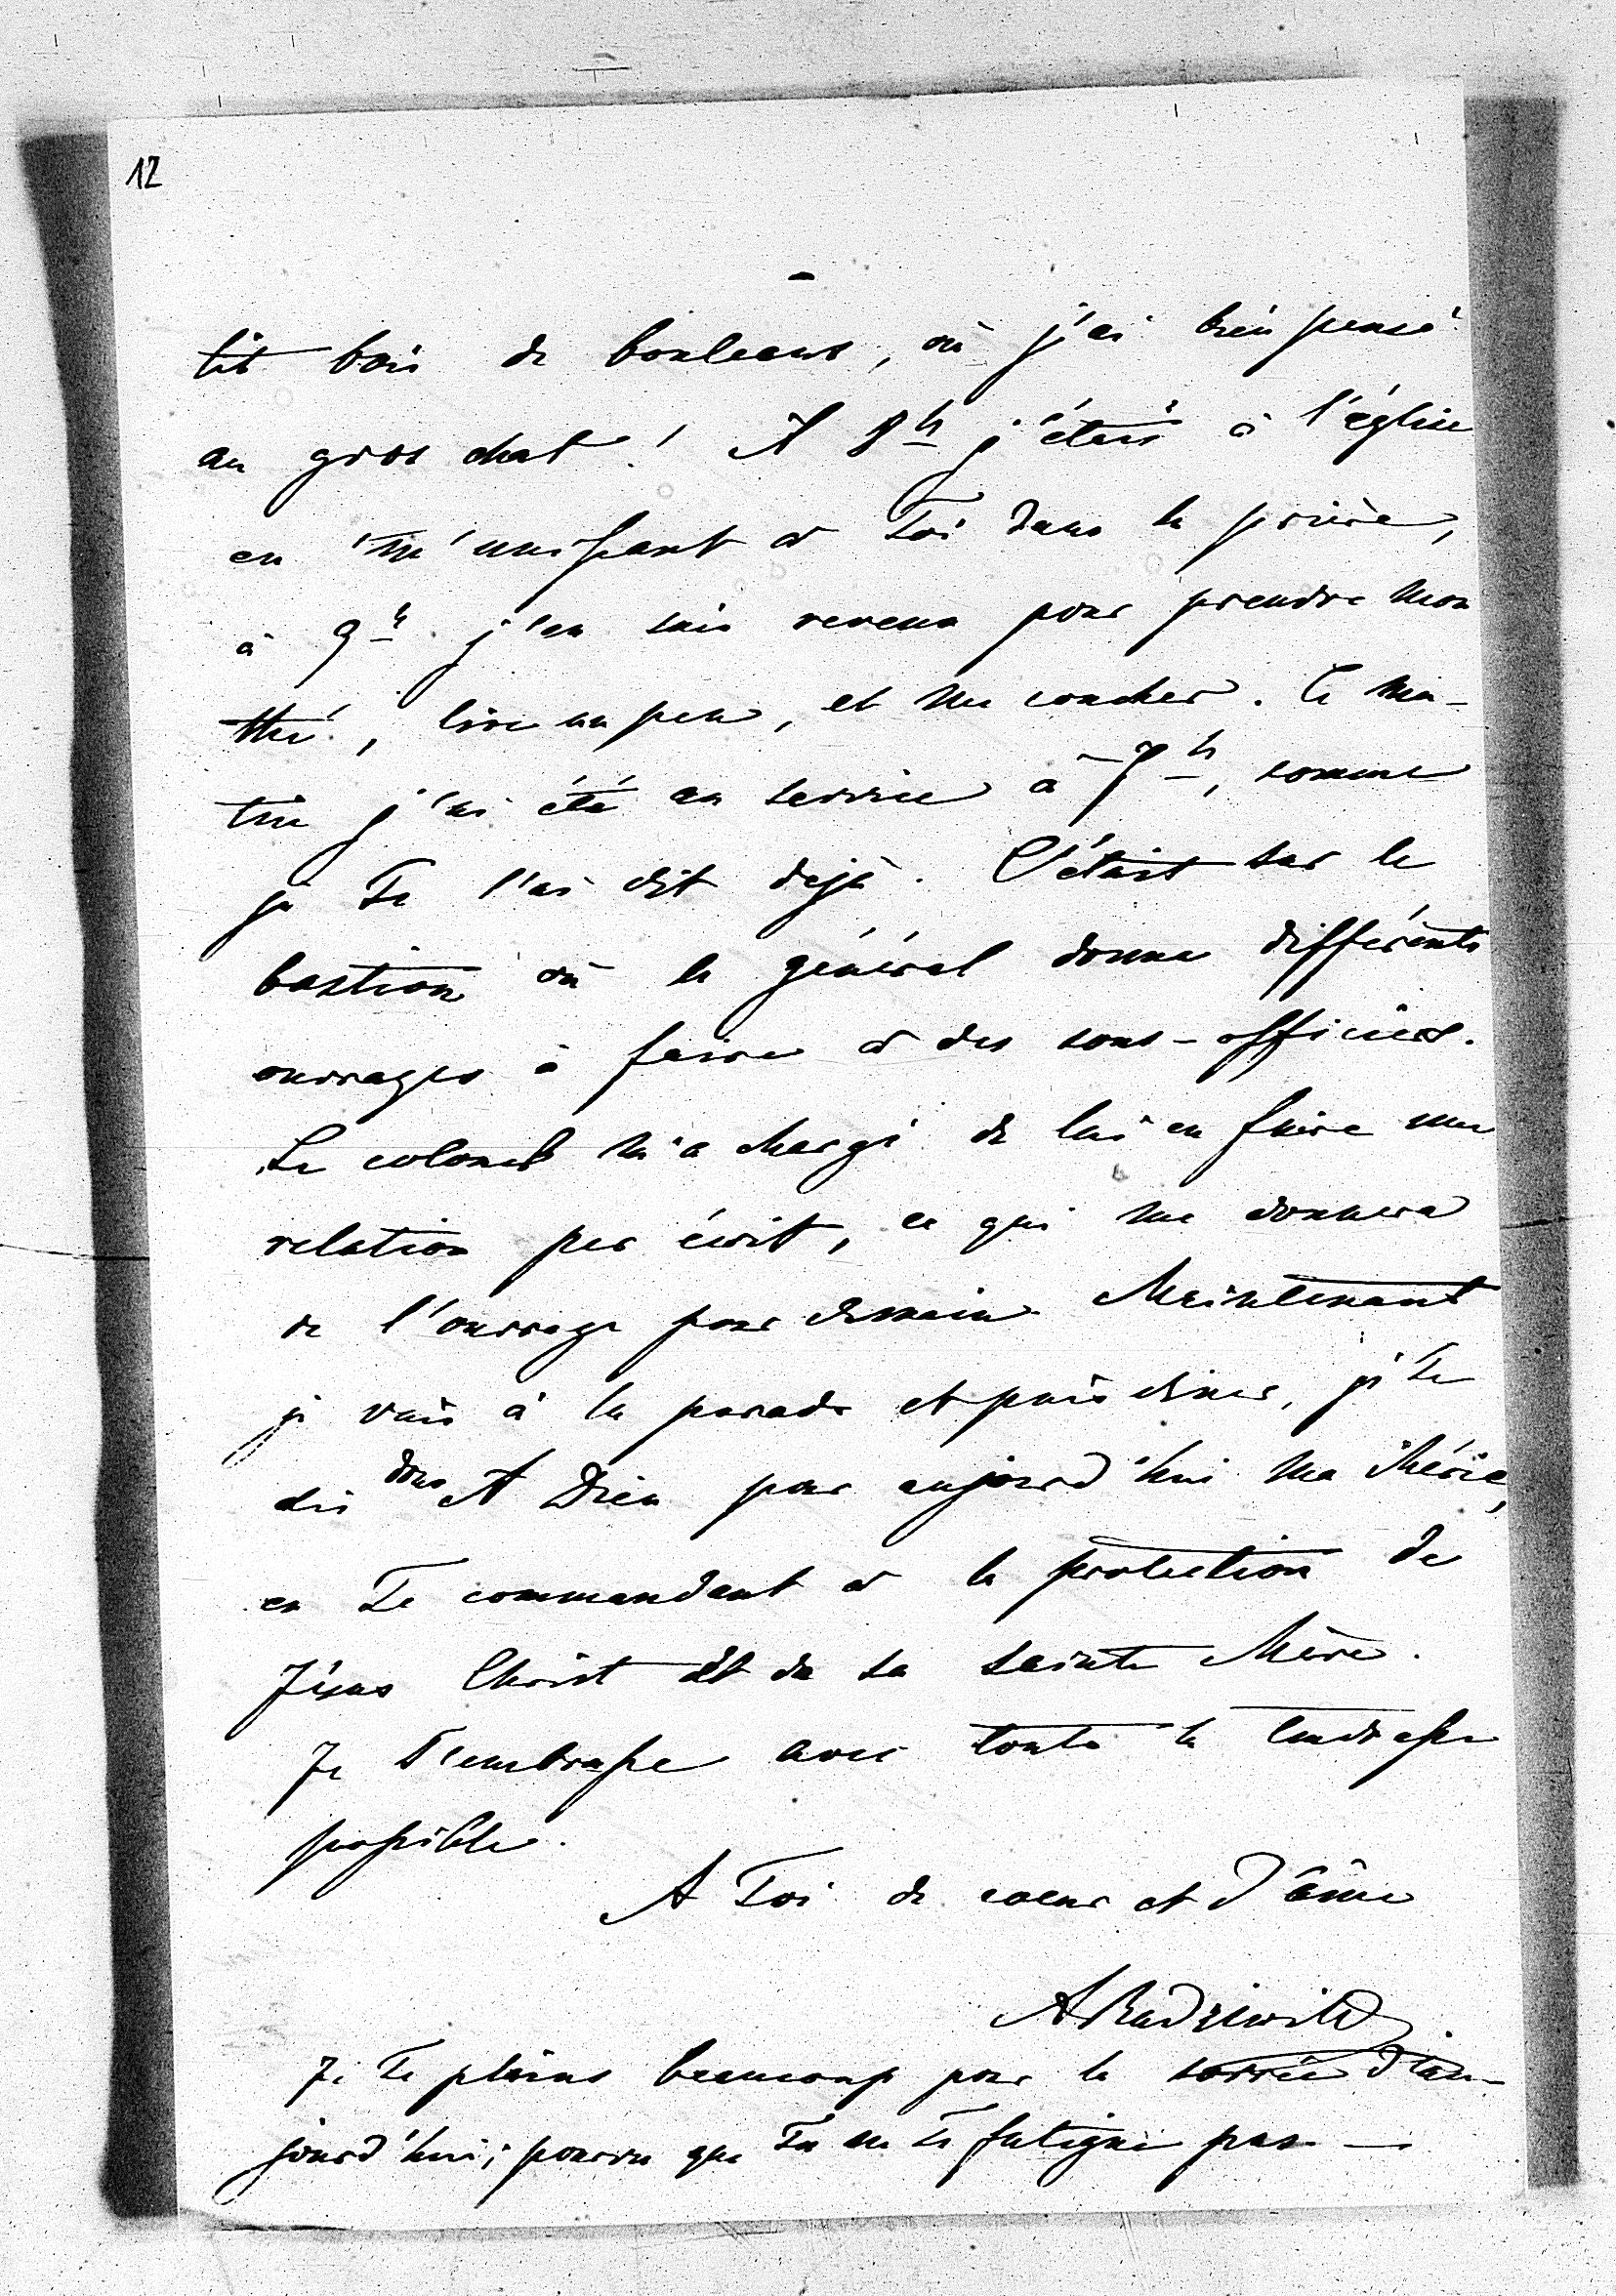 12
tit bois de bouleaus, où j'ai bien pensé
au gros chat! A 8h j'étais à l'église
en m'unissant à Toi dans la prière,
à 9h j'en suis revenu pour prendre mon
thé, lire un peu, et me coucher. Ce ma-
tin j'ai été en service à 7h, comme
je Te l'ai dit dejà. C'était sur le
bastion où le général donne différents
ouvrages à faire à des sous-officiers.
Le colonel m'a chargé de lui en faire une
relation par écrit, ce qui me donnera
de l'ouvrage pour demain. Maintenant
je vais à la parade et puis diner, je Te
dis donc A Dieu pour aujourd'hui ma chérie,
en Te commandant à la protection de
Jésus Christ et de sa sainte Mère.
Je T'embrasse avec toute la tendresse
possible.
A Toi de coeur et d'âme
ARadziwill
Je Te plains beaucoup pour la soirée d'au-
jourd'hui; pourvu que Tu ne Te fatigue pas. —